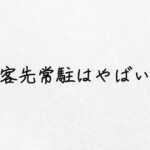 客先常駐はやばい